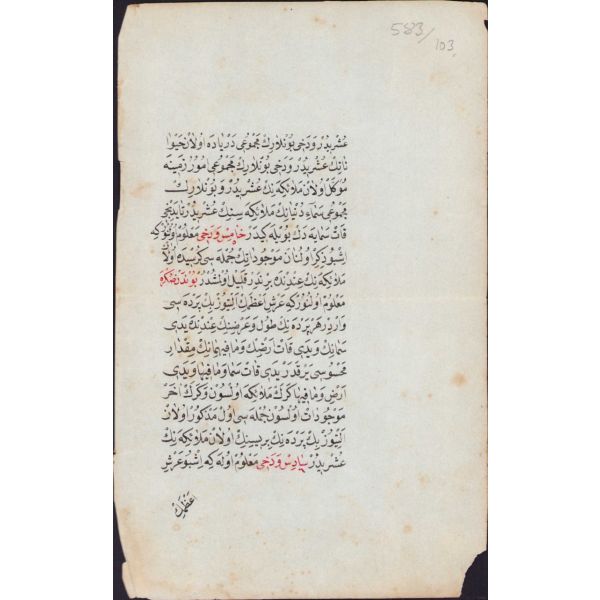 583/103
عُشْرِيدُرْ وَدَخِي بُونْلَارِكْ مَجْمُوعِي دَرْيَادَه اُولَانْ حَيْوَا
نَاتِكْ عُشْرِيدُرْ وَدَخِي بُونْلَارِكْ مَجْمُوعِي مُورُ زَمِينَه
مُوَكَّلْ اُولَانْ مَلَائِكَه نِكْ عُشْرِيدُرْ وَبُونْلَارِكْ
مَجْمُوعِي سَمَاءِ دُنْيَانِكْ مَلَائِكَه سِنِكْ عُشْرِيدُرْ تَا يَدِنْجِي
قَاتْ سَمَايَه دَكْ بُويْلَه كِيدَرْ خَامِسْ وَدَخِي مَعْلُومْ اُولْنُورْكَه
اِشْبُو ذِكْرْ اُولُنَانْ مَوْجُودَاتِكْ جُمْلَه سِي كُرْسِيدَه اُولَانْ
مَلَائِكَه نِكْ عِنْدِنْدَه بِرْ نَذْرِ قَلِيلْ اُولْمُشْدُرْ بُونْدَنْصَكْرَه
مَعْلُومْ اُولْنُورْكَه عَرْشِ اَعْظَمِكْ اَلْتِيُوزْ بِيكْ پَرْدَه سِي
وَارْدِرْ هَرْ پَرْدَه نِكْ طُولْ وَعَرْضِنِكْ عِنْدِنْدَه يَدِي
سَمَانِكْ وَيَدِي قَاتْ اَرْضِكْ وَمَا فِيهِمَانِكْ مِقْدَارِ
مَحْسُوسِي يُوقْدُرْ يَدِي قَاتْ سَمَا وَمَا فِيهَا وَيَدِي
اَرْضْ وَمَا فِيهَا كَرَكْ مَلَائِكَه اُولْسُونْ وَكَرَكْ اٰخَرْ
مَوْجُودَاتْ اُولْسُونْ جُمْلَه سِي اُولْ مَذْكُورْ اُولَانْ
اَلْتِيُوزْ بِيكْ پَرْدَه نِكْ بِرِيسِنِكْ اُولَانْ مَلَائِكَه نِكْ
عُشْرِيدُرْ سَادِسْ وَدَخِي مَعْلُومْ اُولَه كِه اِشْبُو عَرْشِ
اَعْظَمِكْ